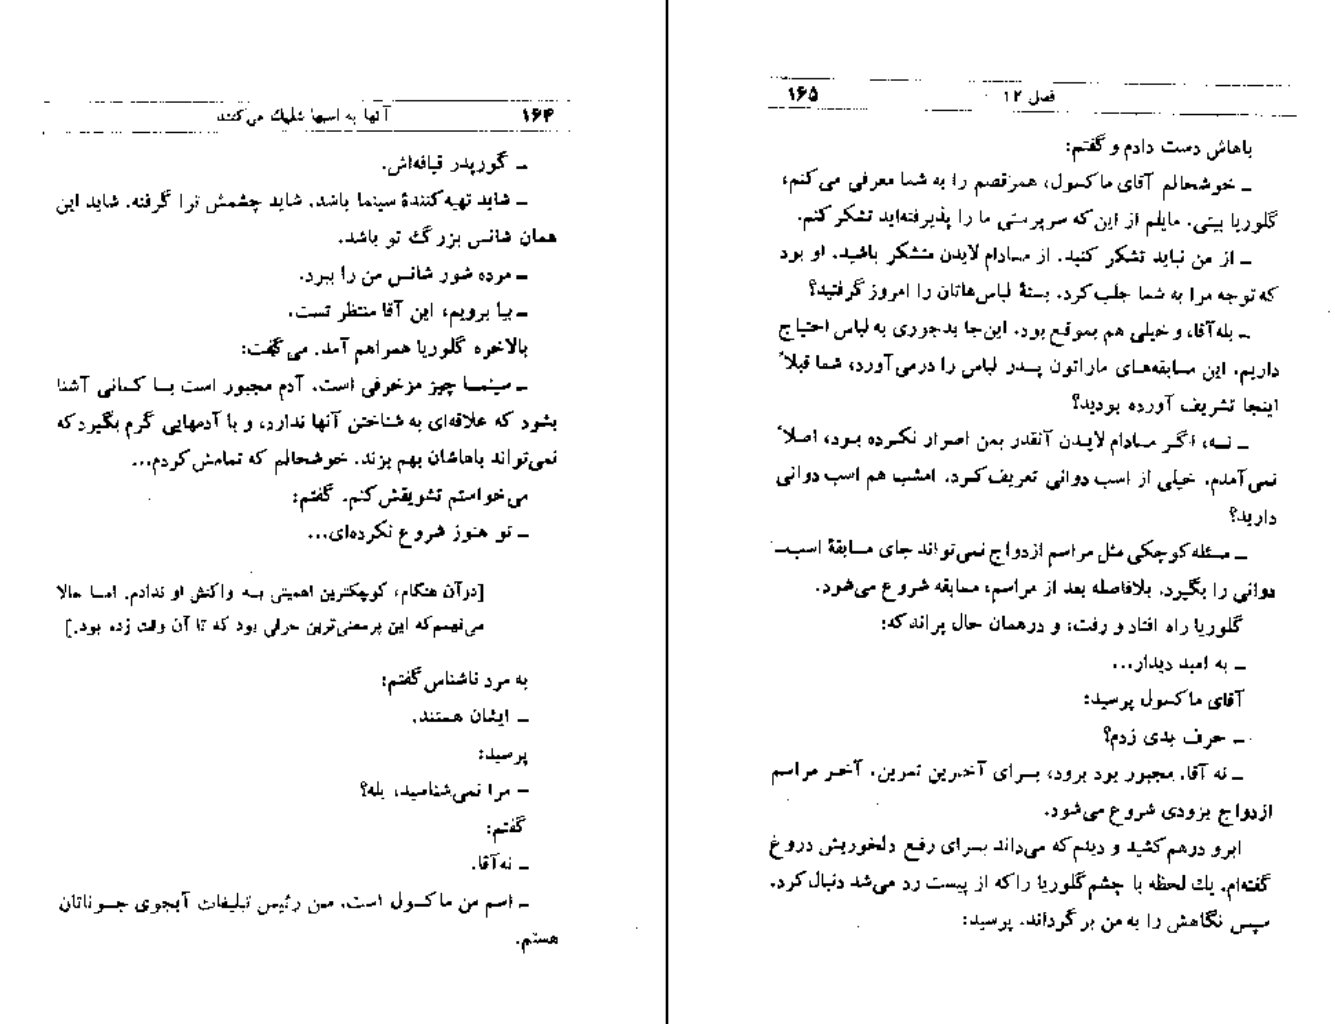 ۱۶۴
آنها به اسبها شلیك می‌کنند
ـ گورپدر قیافه‌اش.
ـ شاید تهیه‌کنندهٔ سینما باشد. شاید چشمش ترا گرفته. شاید این
همان شانس بزرگ تو باشد.
ـ مرده شور شانس من را ببرد.
ـ بیا برویم، این آقا منتظر تست.
بالاخره گلوریا همراهم آمد. می‌گفت:
ـ سینما چیز مزخرفی است. آدم مجبور است با کسانی آشنا
بشود که علاقه‌ای به شناختن آنها ندارد، و با آدمهایی گرم بگیرد که
نمی‌تواند باهاشان بهم بزند. خوشحالم که تمامش کردم...
می‌خواستم تشویقش کنم. گفتم:
ـ تو هنوز شروع نکرده‌ای...
[در آن هنگام، کوچکترین اهمیتی به واکنش او ندادم. اما حالا
می‌فهمم که این پرمعنی‌ترین حرفی بود که تا آن وقت زده بود.]
به مرد ناشناس گفتم:
ـ ایشان هستند.
پرسید:
ـ مرا نمی‌شناسید، بله؟
گفتم:
ـ نه آقا.
ـ اسم من ماکسول است. من رئیس تبلیغات آبجوی جوناتان
هستم.
فصل ۱۲
۱۶۵
باهاش دست دادم و گفتم:
ـ خوشحالم آقای ماکسول، همرقصم را به شما معرفی می‌کنم،
گلوریا بیتی. مایلم از این‌که سرپرستی ما را پذیرفته‌اید تشکر کنم.
ـ از من نباید تشکر کنید. از مادام لایدن متشکر باشید. او بود
که توجه مرا به شما جلب کرد. بستهٔ لباس‌هاتان را امروز گرفتید؟
ـ بله آقا، و خیلی هم بموقع بود. این‌جا بدجوری به لباس احتیاج
داریم. این مسابقه‌های ماراتون پدر لباس را درمی‌آورد، شما قبلاً
اینجا تشریف آورده بودید؟
ـ نه، اگر مادام لایدن آنقدر بمن اصرار نکرده بود، اصلاً
نمی‌آمدم. خیلی از اسب دوانی تعریف کرد. امشب هم اسب دوانی
دارید؟
ـ مسئله کوچکی مثل مراسم ازدواج نمی‌تواند جای مسابقهٔ اسب‌ـ
دوانی را بگیرد. بلافاصله بعد از مراسم، مسابقه شروع می‌شود.
گلوریا راه افتاد و رفت، و درهمان حال پراند که:
ـ به امید دیدار...
آقای ماکسول پرسید:
ـ حرف بدی زدم؟
ـ نه آقا. مجبور بود برود، برای آخرین تمرین. آخر مراسم
ازدواج بزودی شروع می‌شود.
ابرو درهم کشید و دیدم که می‌داند برای رفع دلخوریش دروغ
گفته‌ام. یك لحظه با چشم گلوریا را که از پیست رد می‌شد دنبال کرد.
سپس نگاهش را به من برگرداند. پرسید: